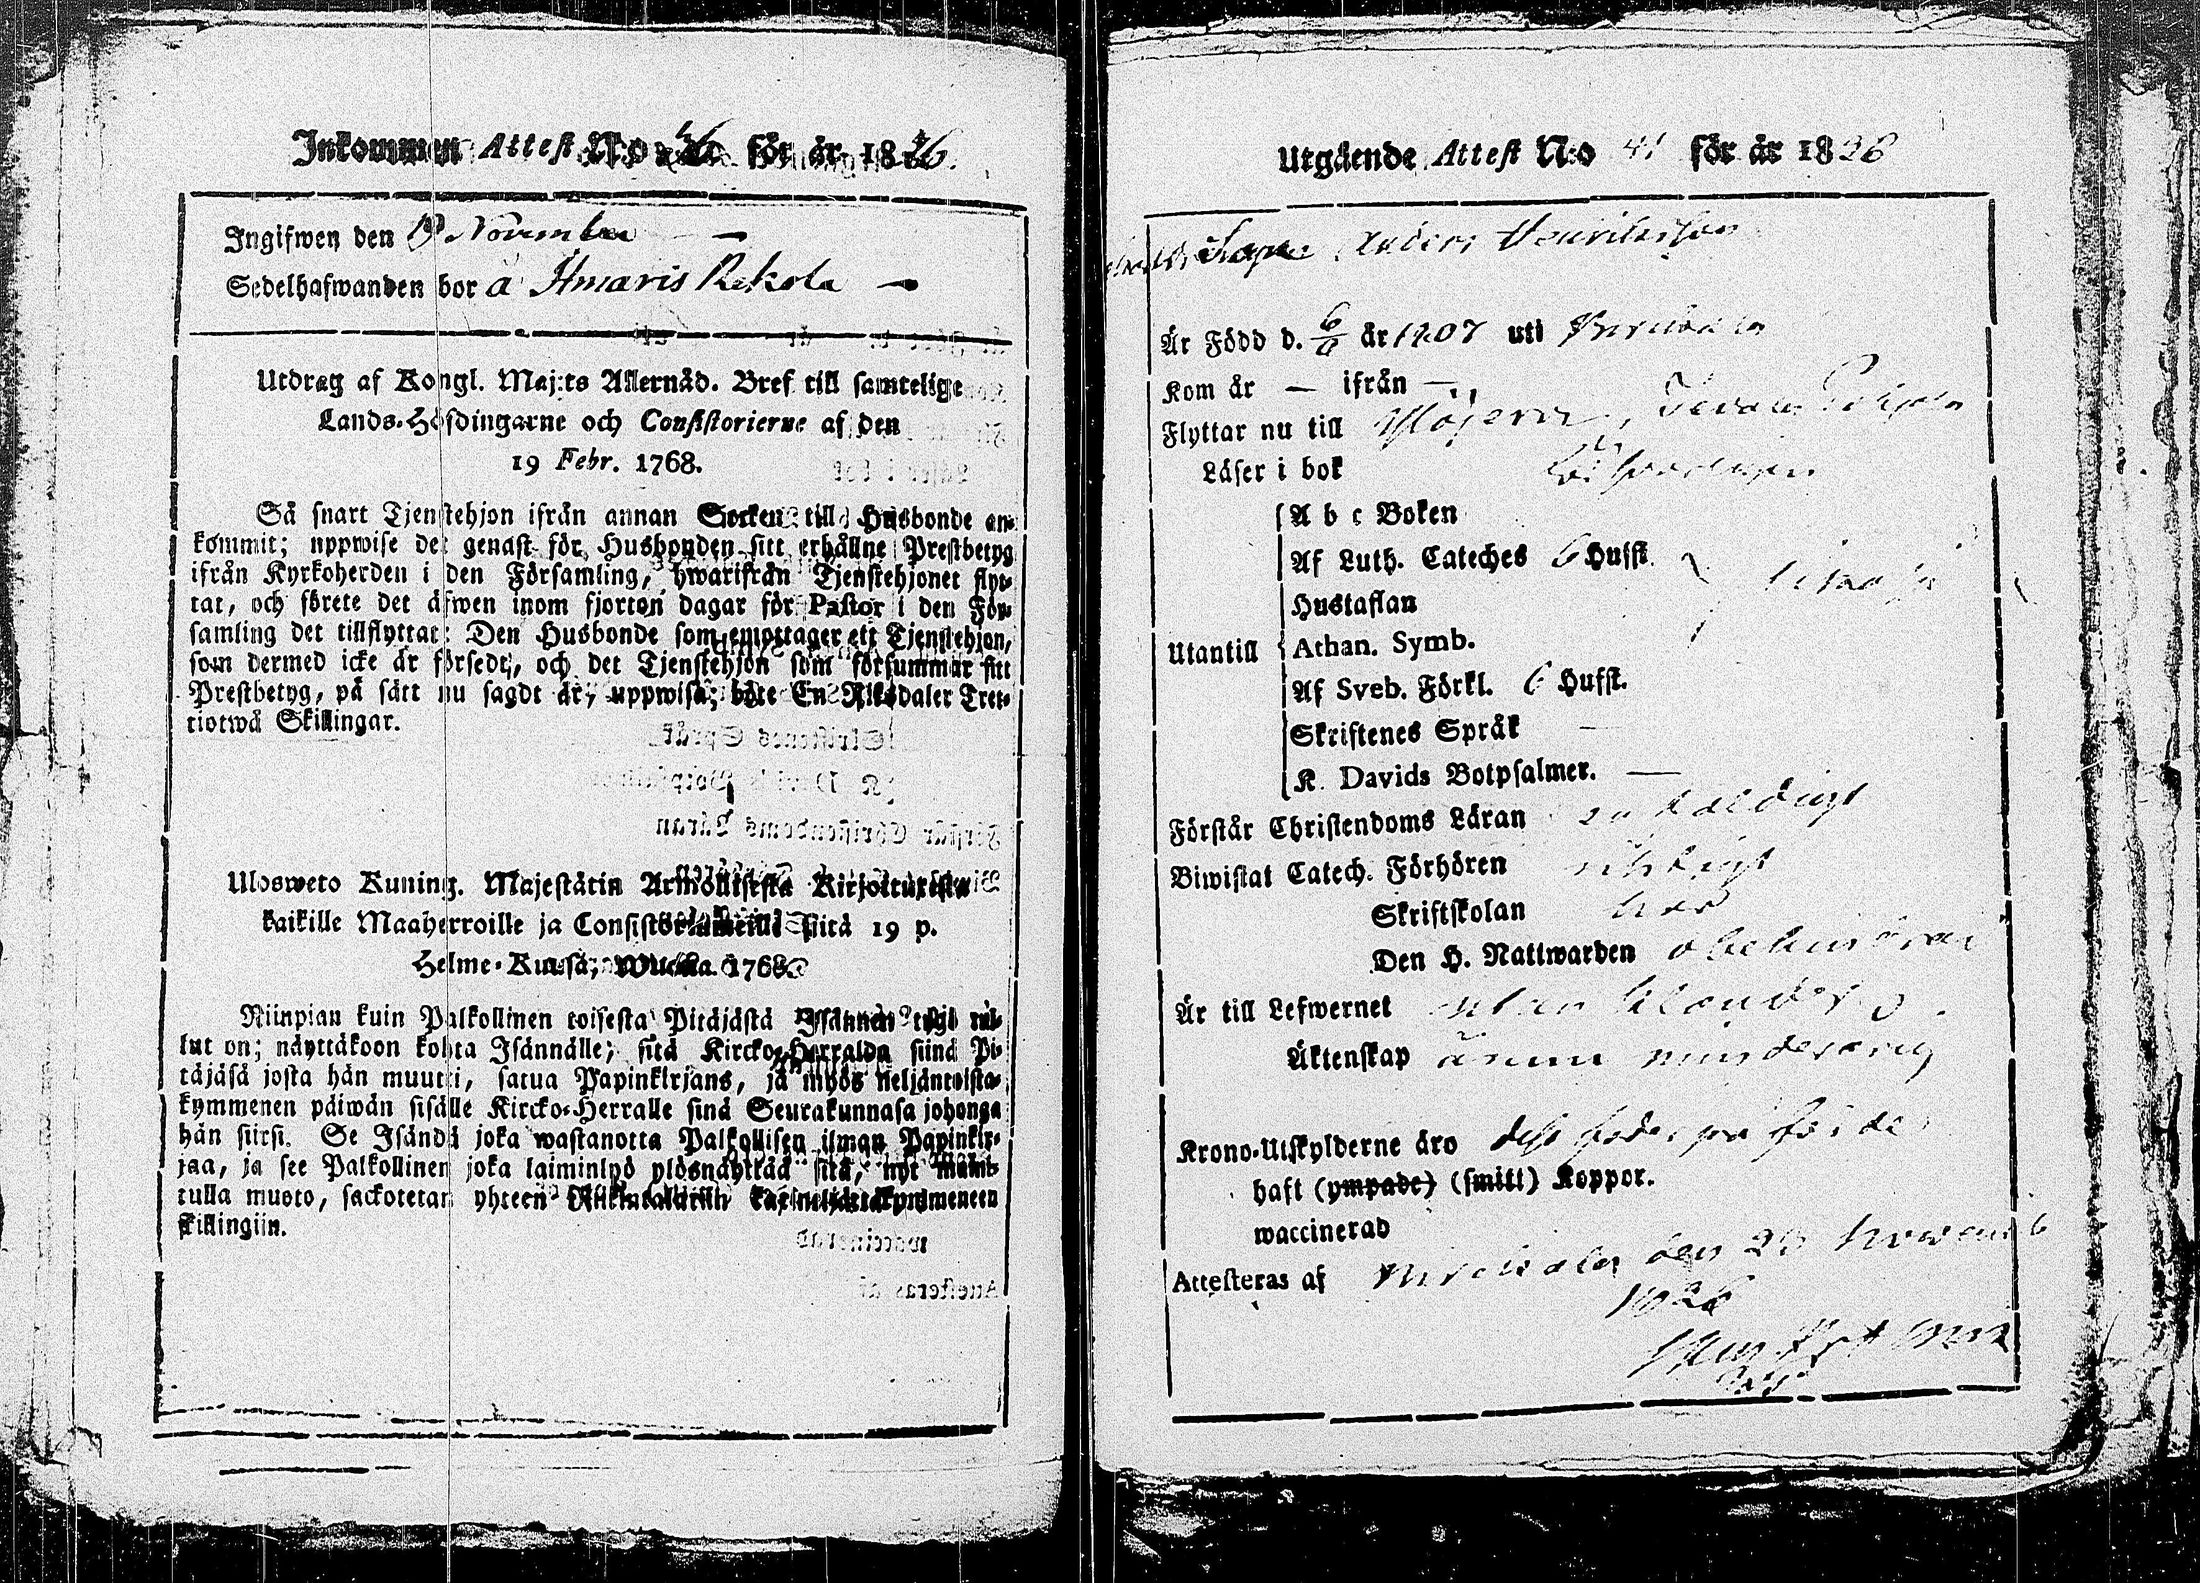 Inkommen Attest N:o 46 för år 1826.
Ingifwen den 19 November —
Sedelhafwanden bor å Itmaris Rekola —
Utdrag af Kongl. Maj:ts Allernåd. Bref till samtelige
Lands-Höfdingarne och Consistorierne af den
19 Febr. 1768.
Så snart Tjenstehjon ifrån annan Socken till Husbonde an-
kommit; uppwise det genast för Husbonden sitt erhållne Prestbetyg
ifrån Kyrkoherden i den Församling, hwarifrån Tjenstehjonet flyt-
tat, och förete det äfwen inom fjorton dagar för Pastor i den För-
samling det tillflyttat: Den Husbonde som emottager ett Tjenstehjon,
som dermed icke är försedt, och det Tjenstehjon som försummar sitt
Prestbetyg, på sätt nu sagdt är, uppwisa; böte En Riksdaler Tret-
tiotwå Skillingar.
Ulosweto Kuning. Majestätin Armollisesta Kirjoituxesta
kaikille Maaherroille ja Consistoriumeille Siitä 19 p.
Helme-Kuusa, Wuonna 1768.
Niinpian kuin Palkollinen toisesta Pitäjästä Isännän tygö tul-
lut on; näyttäkoon kohta Isännälle, sitä Kircko-Herralda siinä Pi-
täjäsä josta hän muutti, saatua Papinkirjans, ja myös neljäntoista-
kymmenen päiwän sisälle Kircko-Herralle siinä Seurakunnasa johonga
hän siirsi. Se Isändä joka wastanotta Palkollisen ilman Papinkir-
jaa, ja see Palkollinen joka laiminlyö ylösnäyttää sitä, nyt mainit-
tulla muoto, sackotetan yhteen Riikintalariin kaxineljättäkymmeneen
skillingiin.
Utgående Attest N:o 41 för år 1826
Anders Henriksson
Är Född d. 6/6 år 1807 uti
Kom år — ifrån —
Flyttar nu till
Läser i bok
A b c Boken
Af Luth. Cateches 6 Hufst.
Hustaflan
Utantill Athan. Symb.
Af Sveb. Förkl. 6 Hufst.
Skriftenes Språk —
K. Davids Botpsalmer. —
Förstår Christendoms Läran enfaldigt
Biwistat Catech. Förhören riktigt
Skriftskolan här
Den H. Nattwarden obehindrad
Är till Lefwernet utan klander
Äktenskap ännu minderårig
Krono-Utskylderne äro dess fader påförde
haft (ympade) (smitt) Koppor.
waccinerad
Attesteras af den 29 November
1826